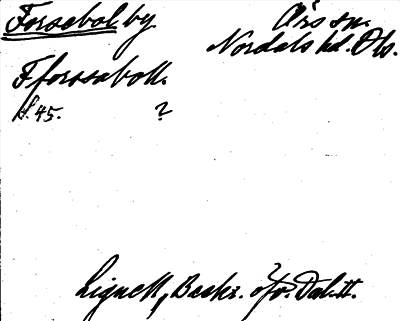 Forsebol by Ärs sn.
Nordals hd. Ds.
Fforssaboll.
s. 45. ?
Lignell, Beskr. öfv. Dal. II.